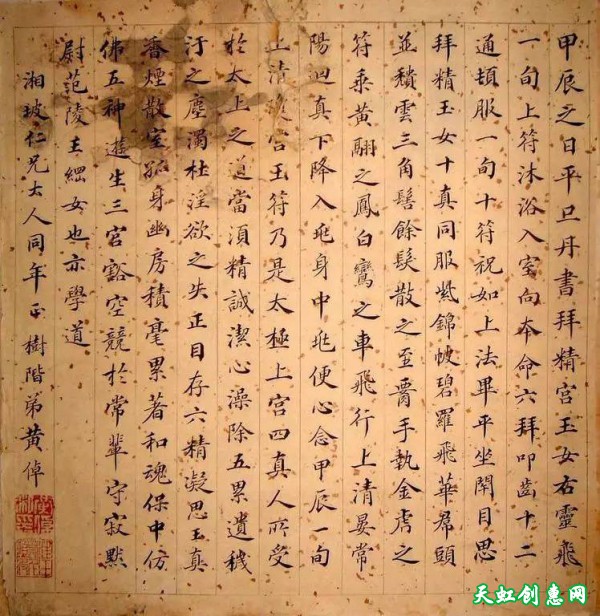 甲辰之日平旦丹書拜精宮玉女右靈飛
一旬上符沐浴入室向本命六拜叩齒十二
通頓服一旬十符祝如上法畢平坐閉目思
拜精玉女十真同服紫錦帔碧羅飛華帬頭
並穨雲三角髻餘髮散之至胷手執金虎之
符乘黃翮之鳳白鸞之車飛行上清晏常
陽迴真下降入兆身中兆便心念甲辰一旬
上清瓊宮玉符乃是太極上宮四真人所受
於太上之道當須精誠潔心澡除五累遺穢
汙之塵濁杜淫欲之失正目存六精凝思玉真
香煙散室孤身幽房積毫累著和魂保中仿
佛五神遊生三宮豁空競於常輩守寂默
尉范陵王綱女也亦學道
湘玻仁兄大人同年正樹階弟黃倬
天虹创惠网